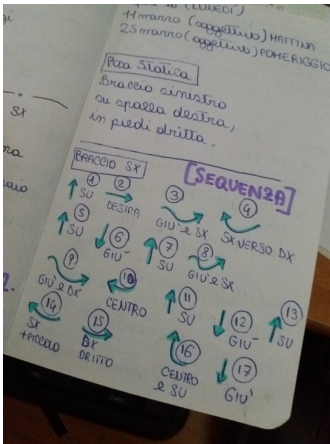 (LUNEDI')
11 marzo (oggettivo) MATTINA
25 marzo (oggettivo) POMERIGGIO
Posa Statica
Braccio sinistro
su spalla destra,
in piedi dritta.
SX
BRACCIO SX
[SEQUENZA]
1 SU
2 DESTRA
3 GIU' e SX
4 SX VERSO DX
5 SU
6 GIU'
7 SU
8 GIU' e SX
9 GIU' e DX
10 CENTRO
11 SU
12 GIU'
13 SU
14 SX + PICCOLO
15 DX DRITTO
16 CENTRO e SU
17 GIU'